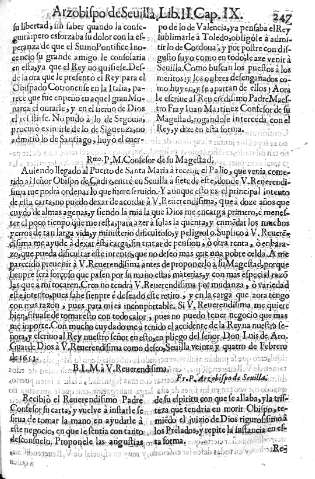 Arzobispo de Sevilla, Lib. II. Cap. IX. 247
su libertad, sin saber quando la conse-
guirà; pero esforzaba su dolor con la es-
peranza de que el Sumo Pontifice Ino-
cencio su grande amigo le consolaria
en esta, ya que el Rey no quisiesse. Des-
de la ora que le presentò el Rey para el
Obispado Cotronense en la Italia, pa-
rece que fue empeño en aquel gran Mo-
narca el onrarle, y en el servo de Dios
el resistirse. No pudo à lo de Segovia,
procurò eximirse de lo de Siguenza, no
admitiò lo de Santiago, huyò el cuer-
po de lo de Valencia, ya pensaba el Rey
sublimarle à Toledo, obligóle à admi-
tir lo de Cordova, y por postre con dis-
gusto suyo como en todo le àze venir à
Sevilla. Como buscan los puestos à los
meritos, y los onores desengañados co-
mo huyen, y se apartan de ellos! Aora
le escrive al Reverendissimo Padre Maes-
tro Fray Iuan Martinez Confesor de su
Magestad, rogandole interceda con el
Rey, y dize en esta forma.
Rmo. P. M. Confesor de su Magestad,
Aviendo llegado al Puerto de Santa Maria à recebir el Palio, que venia come-
tido al señor Obispo de Cadiz, entrè en Sevilla à siete de este, donde V. Reverendis-
sima me podrà ordenar lo que fuere servido. Y aunque este es el principal intento
de esta carta, no puedo dexar de acordar à V. Reverendissima, que à doze años que
cuydo de almas agenas, y siendo la mia la que Dios me encarga primero, è menes-
ter el poco tiempo que me resta, para azer à solas la quenta, y enmendar los muchos
yerros de tan larga vida, y ministerio dificultoso, y peligroso. Suplico à V. Reveren-
dissima me ayude à dexar esta carga, sin tratar de pension, ò otra renta, ò embara-
zo, que pueda dificultar este intento, que no deseo mas que una pobre celda. A me
parecido prevenir à V. Reverendissima antes de proponerlo à su Magestad, porque
siempre serà forçoso que passen por su mano estas materias, y con mas especial razò
las que à mi tocaren. Creo no tendrà V. Reverendissima por mudanza, ò variedad
este intento, pues sabe siempre è deseado este retiro, y en la carga que aora tengo
con mas razon, pues para mi es incomportable. Si V. Reverendissima me quiere
bien, sirvase de tomarlo con todo calor, pues no puedo tener negocio que mas
me importe. Con mucho cuydado me à tenido el accidente de la Reyna nuestra se-
ñora, y escrivo al Rey nuestro señor en esto, en pliego del señor Don Luis de Aro.
Guarde Dios à V. Reverendissima como deseo, Sevilla veinte y quatro de Febrero
de 1652.
B. L. M. à V. Reverendissima.
Fr. P. Arzobispo de Sevilla.
Recibiò el Reverendissimo Padre
Confesor su carta, y vuelve à instarle se
sirva de tomar la mano en ayudarle à
este negocio, en que le sentia con tanto
desconsuelo. Proponele las angustias
de su espiritu con que se allaba, y la tris-
teza que tendria en morir Obispo, te-
miedo el juizio de Dios rigurosissimo à
los Prelados, y repite la instancia en es-
ta forma.
Re-